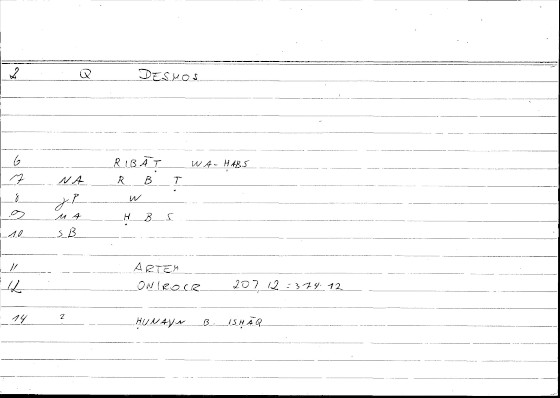 2 Q DESMOS
6 RIBĀṬ WA-ḤABS
7 NA R B Ṭ
8 gP W
9 MA Ḥ B S
10 SB
11 ARTEM
12 ONIROCR 207,12 = 374,12
14 2 ḤUNAYN B. ISḤĀQ